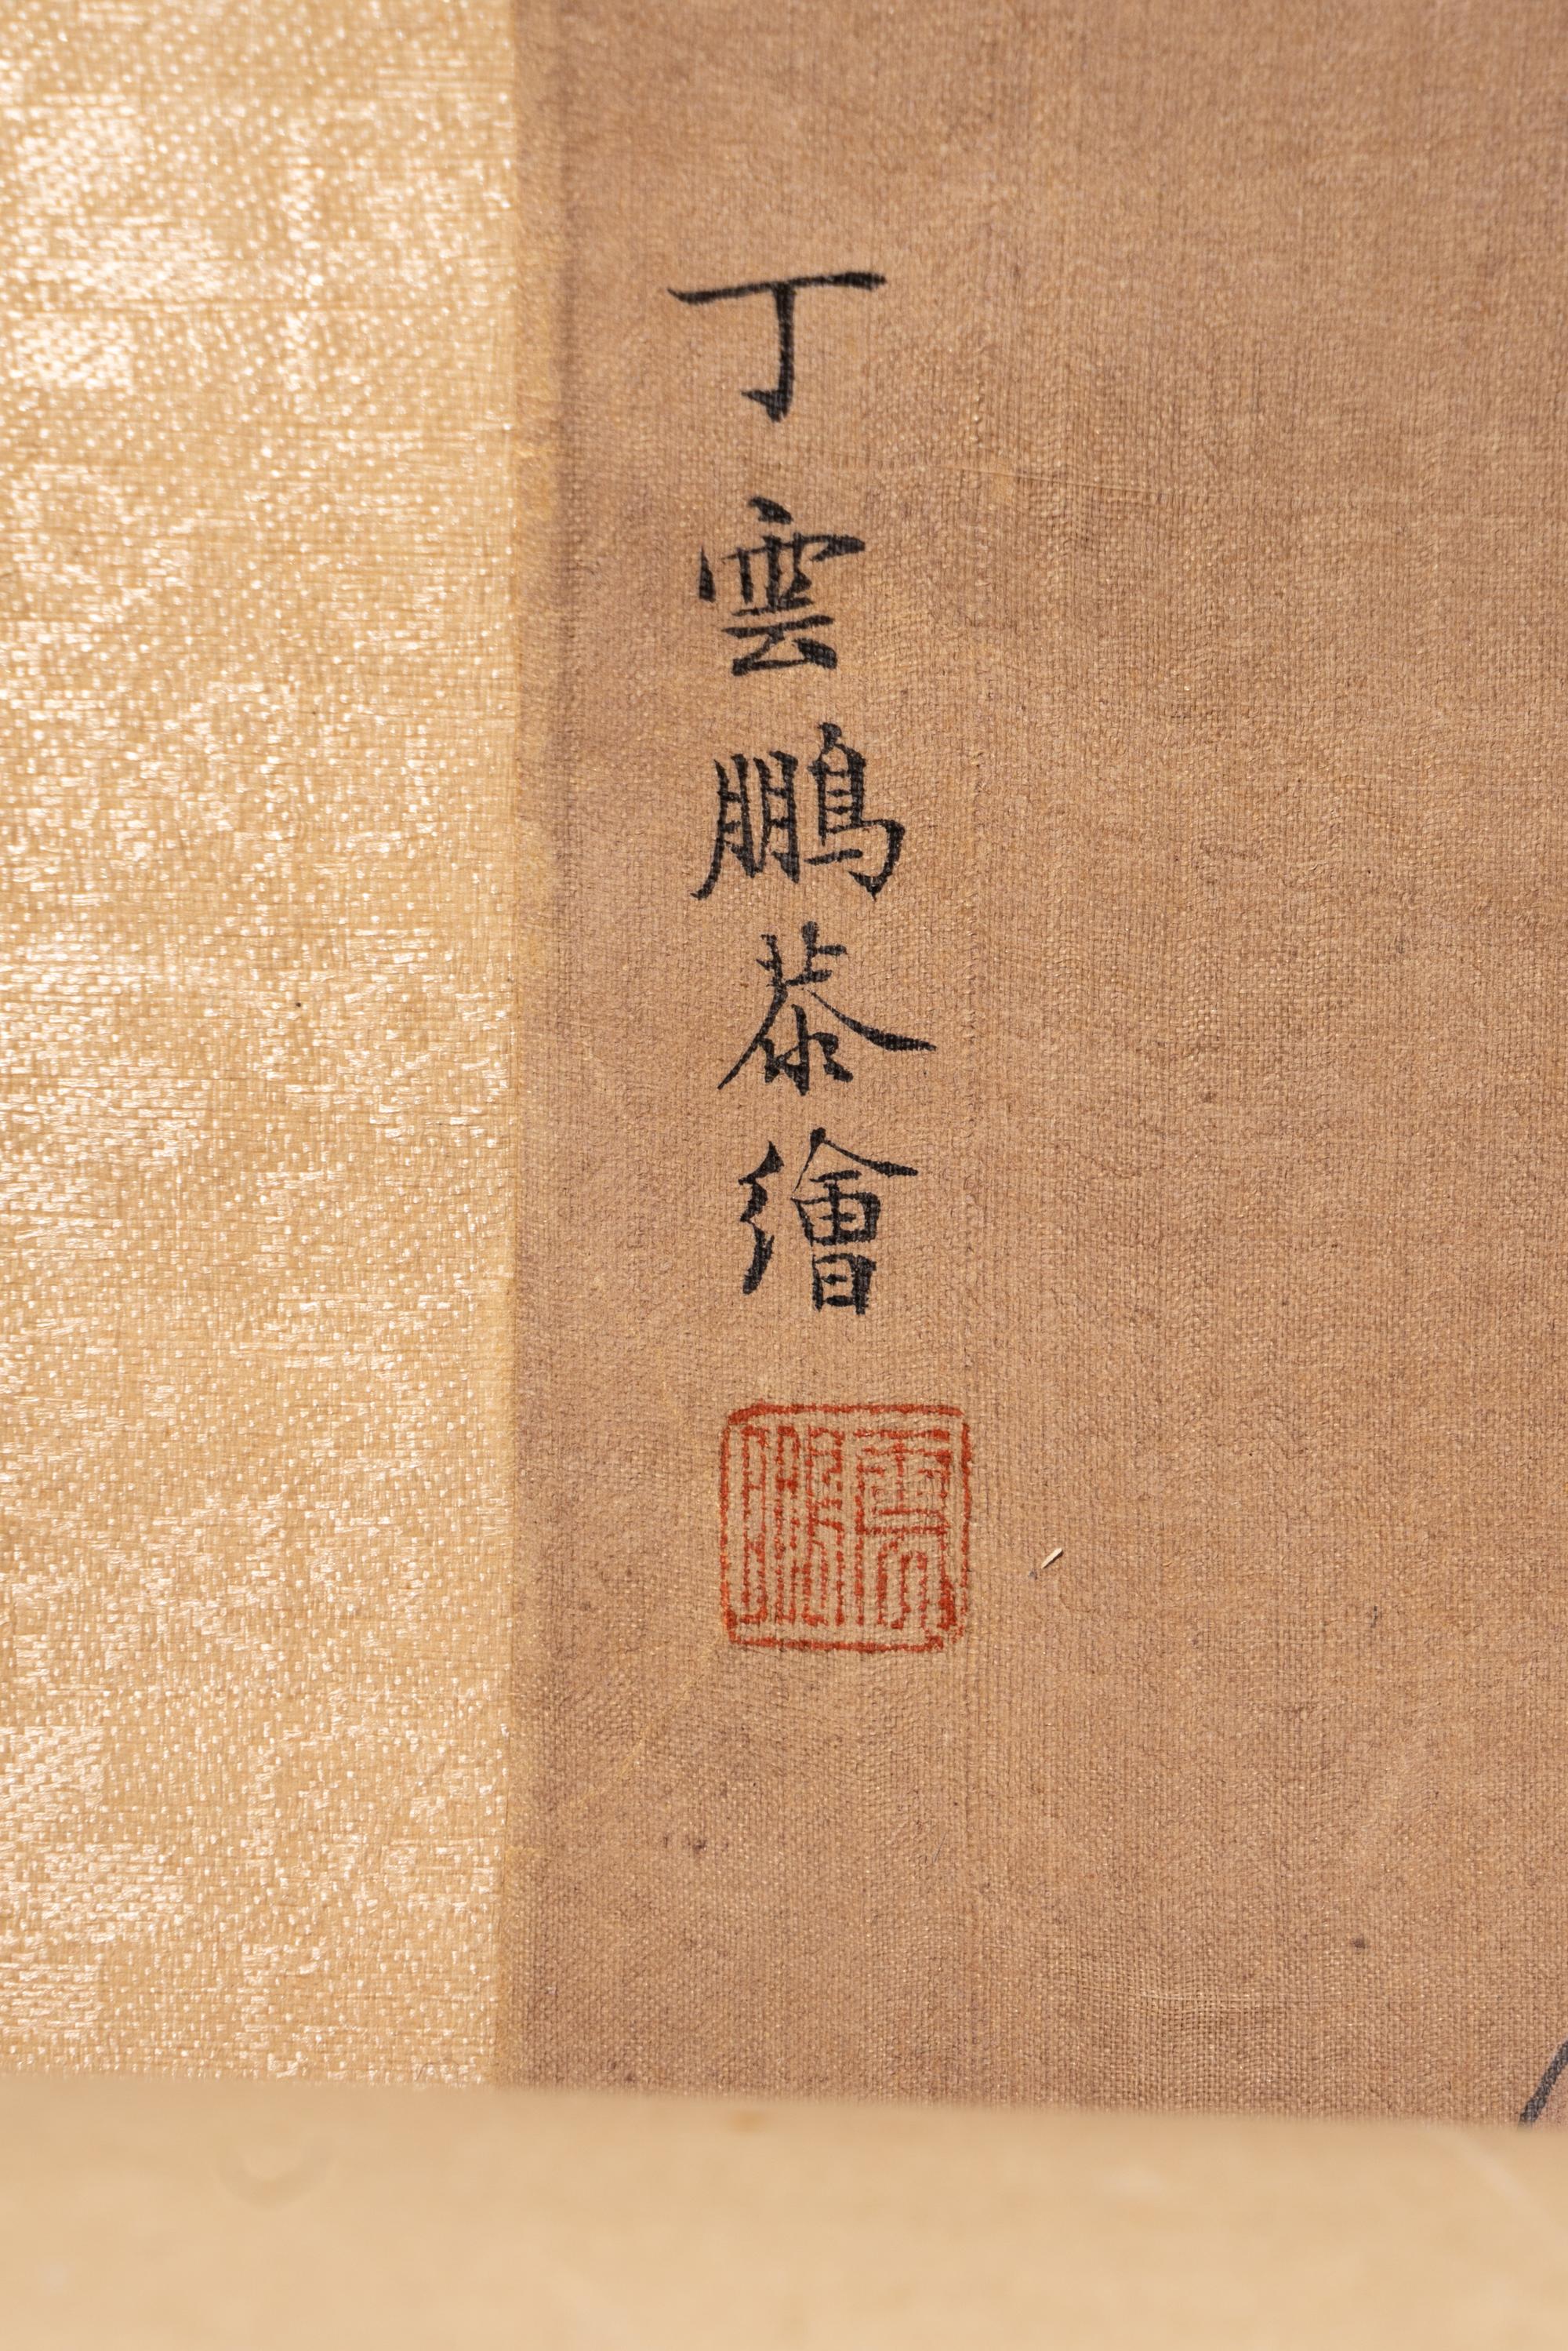 丁雲鵬恭繪
雲鵬